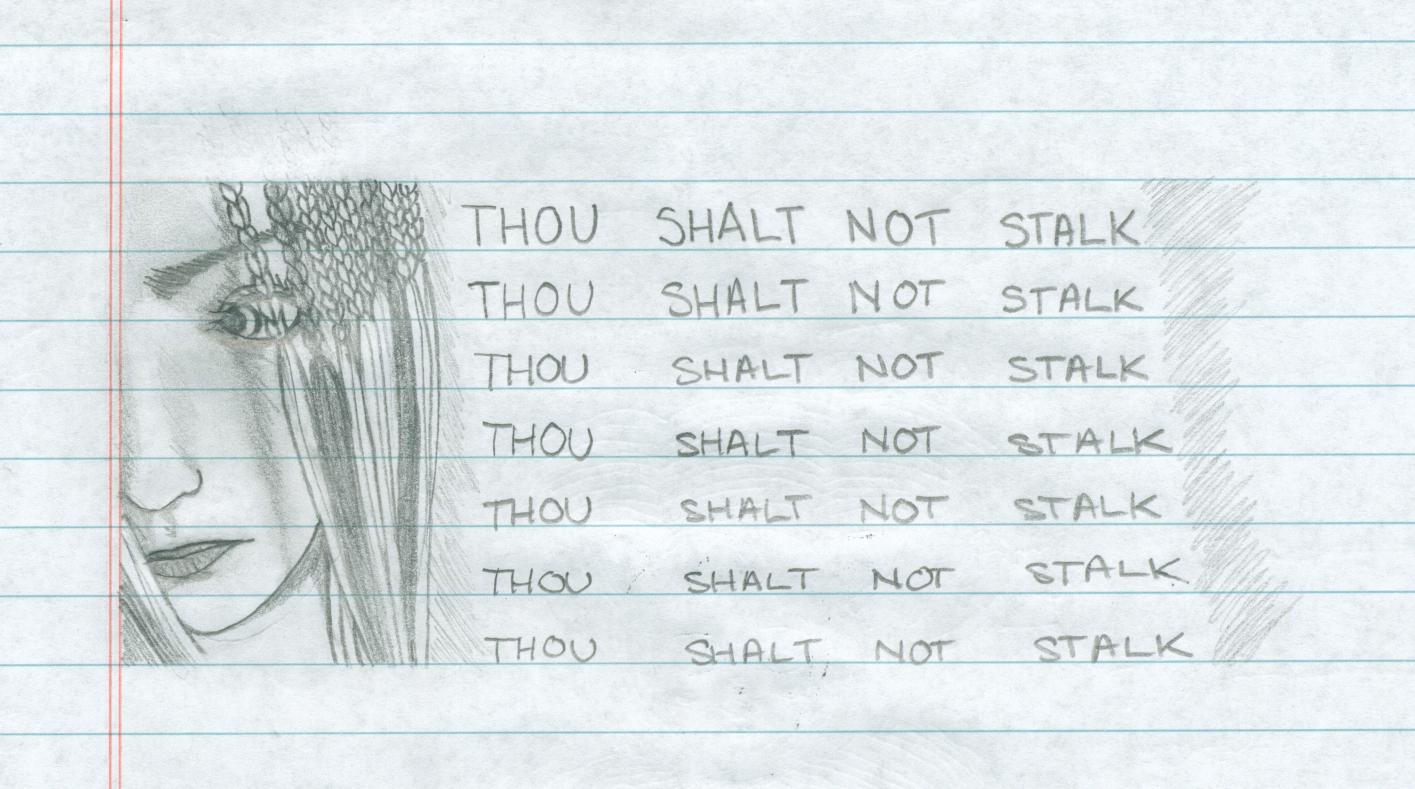 THOU SHALT NOT STALK
THOU SHALT NOT STALK
THOU SHALT NOT STALK
THOU SHALT NOT STALK
THOU SHALT NOT STALK
THOU SHALT NOT STALK
THOU SHALT NOT STALK